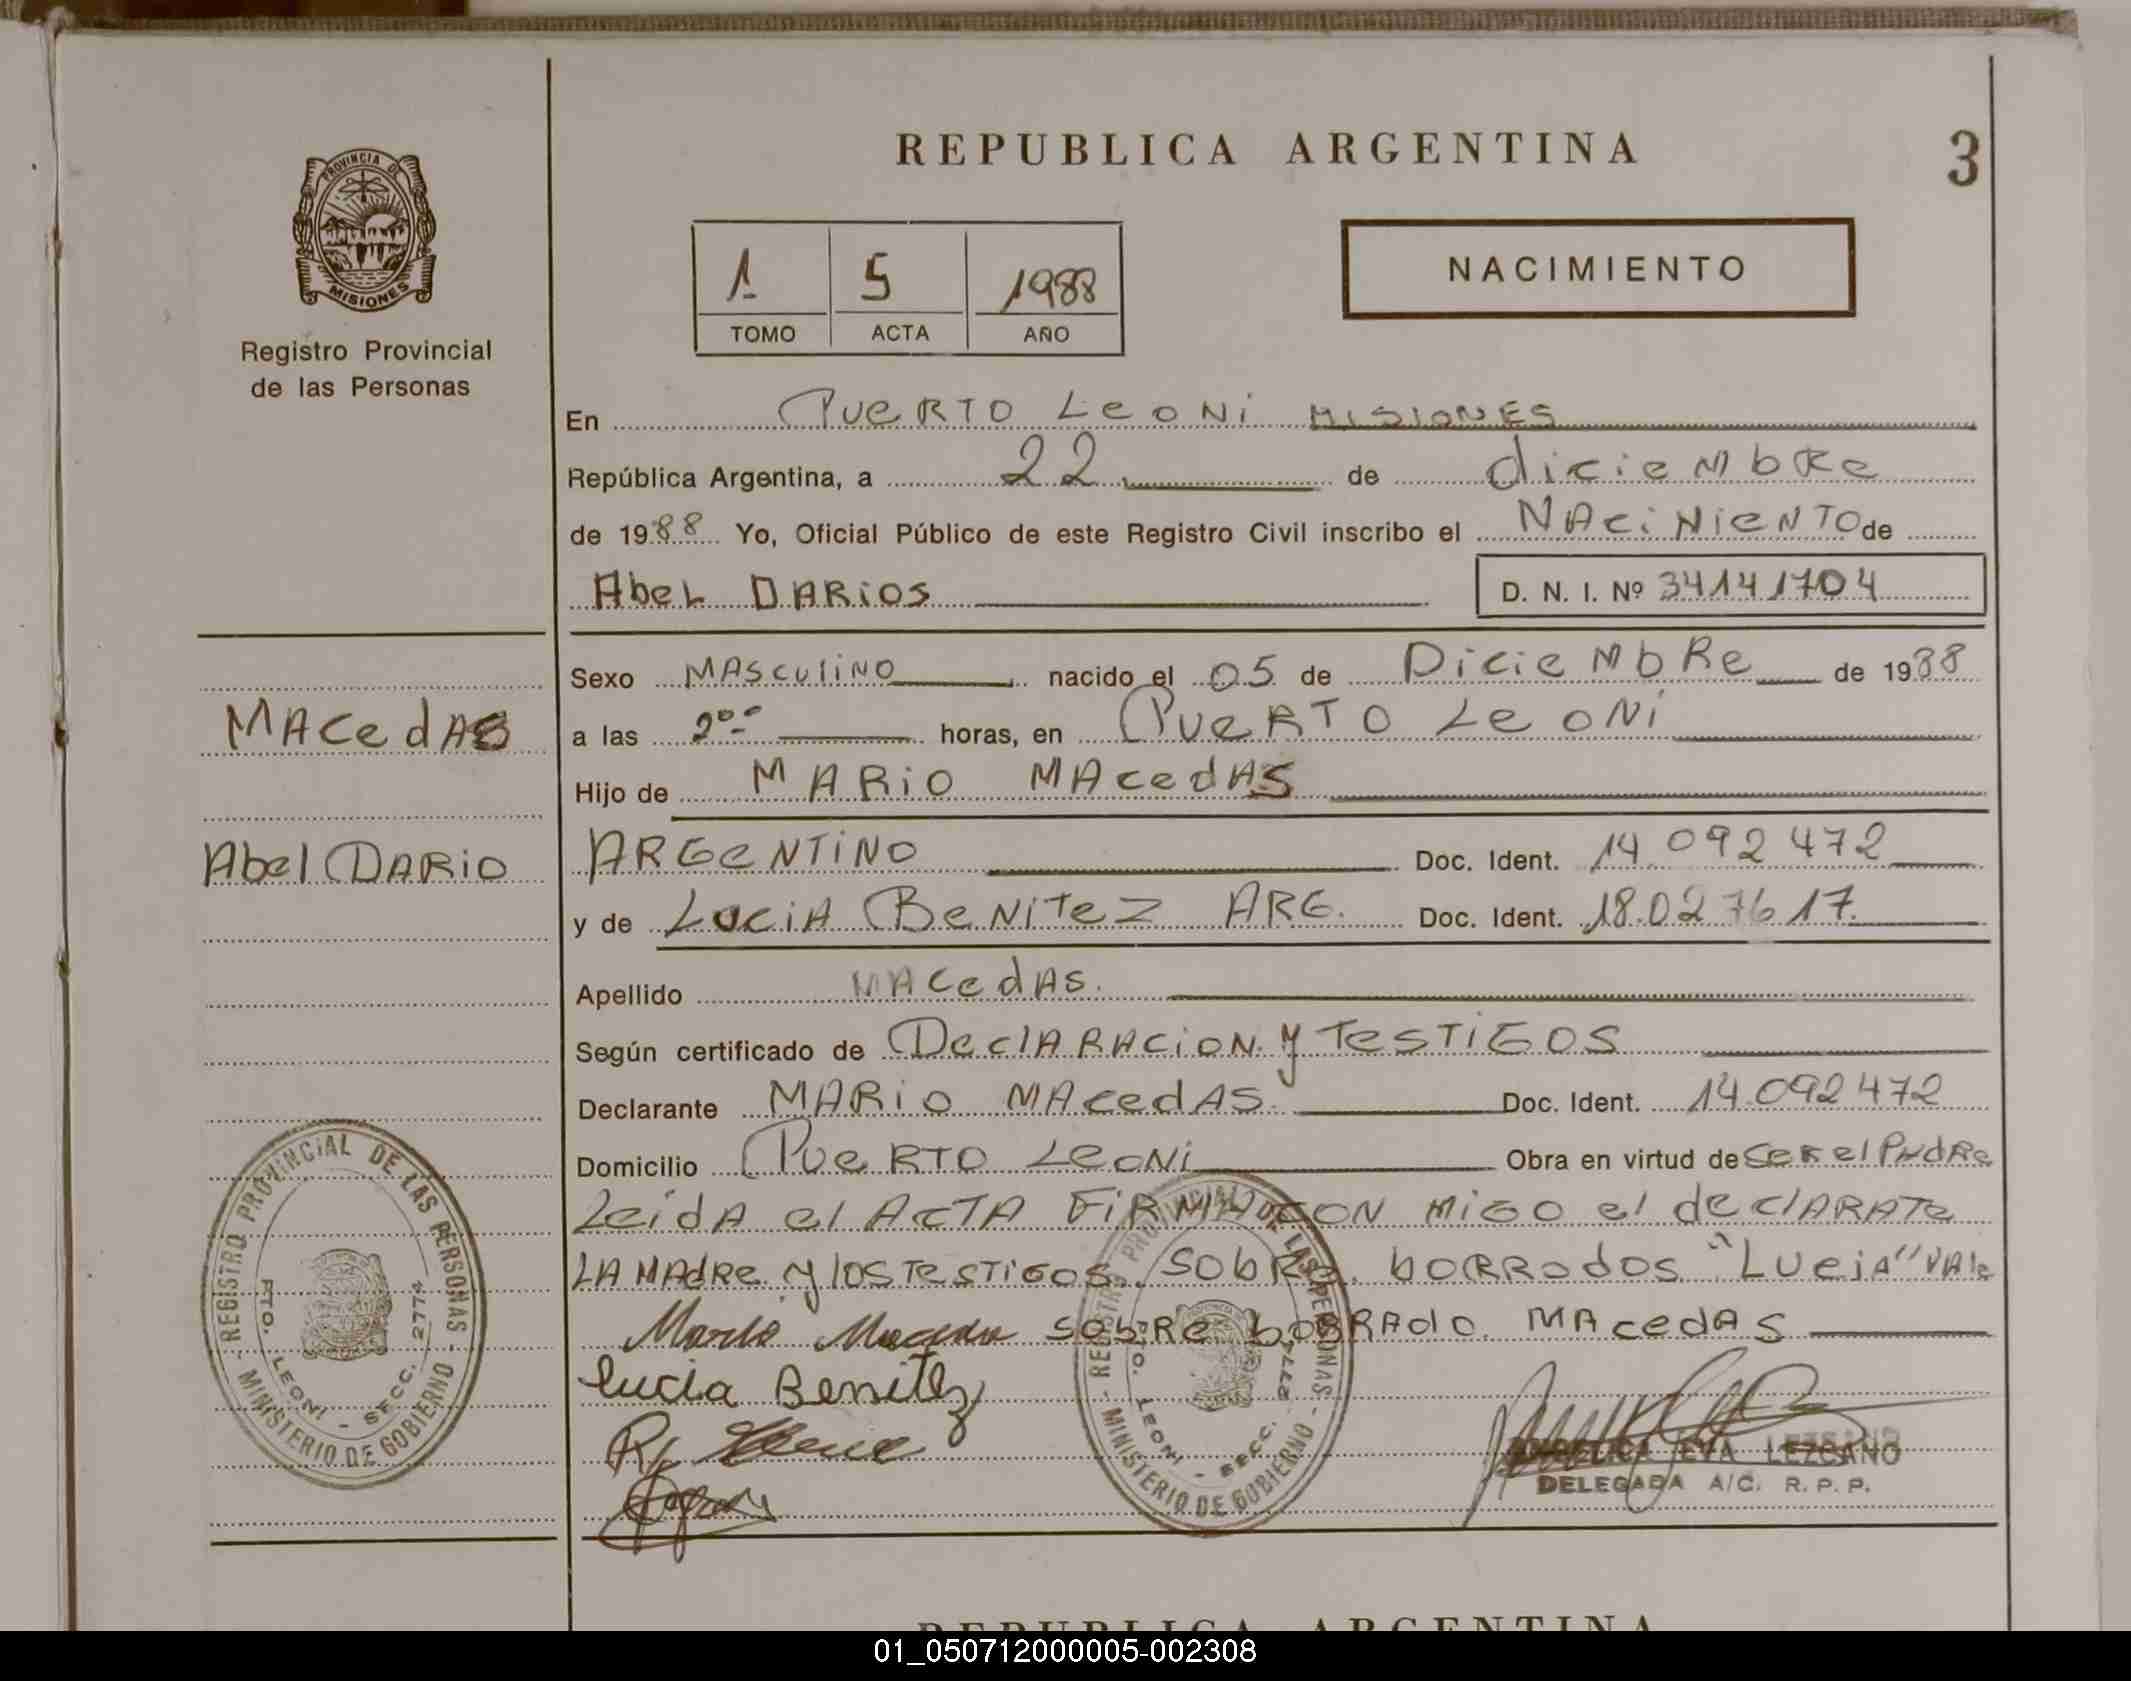 REPUBLICA ARGENTINA
3
PROVINCIA DE
MISIONES
Registro Provincial
de las Personas
1 5 1988
TOMO ACTA AÑO
NACIMIENTO
En Puerto Leoni Misiones
República Argentina, a 22 de diciembre
de 1988 Yo, Oficial Público de este Registro Civil inscribo el NaciNiento de
Abel Darios D. N. I. Nº 34141704
Sexo Masculino nacido el 05 de Diciembre de 1988
Macedas
a las 2⁰⁰ horas, en Puerto Leoni
Hijo de Mario Macedas
Abel Dario
Argentino Doc. Ident. 14.092 472
y de Lucia Benitez Arg. Doc. Ident. 18.027617
Apellido Macedas.
Según certificado de Declaracion y Testigos
Declarante Mario Macedas. Doc. Ident. 14.092472
Domicilio Puerto Leoni Obra en virtud de ser el Padre
Leida el Acta Firman con migo el declarate
la Madre y los Testigos. sobre borrodos "Lucia" vale
sobre borrado. Macedas
Lucia Benitez
ANGELICA EVA LEZCANO
DELEGADA A/C. R. P. P.
REGISTRO PROVINCIAL DE LAS PERSONAS
PTO. LEONI - SECC. 2774
MINISTERIO DE GOBIERNO
REGISTRO PROVINCIAL DE LAS PERSONAS
PTO. LEONI - SECC. 2774
MINISTERIO DE GOBIERNO
REPUBLICA ARGENTINA
01_050712000005-002308